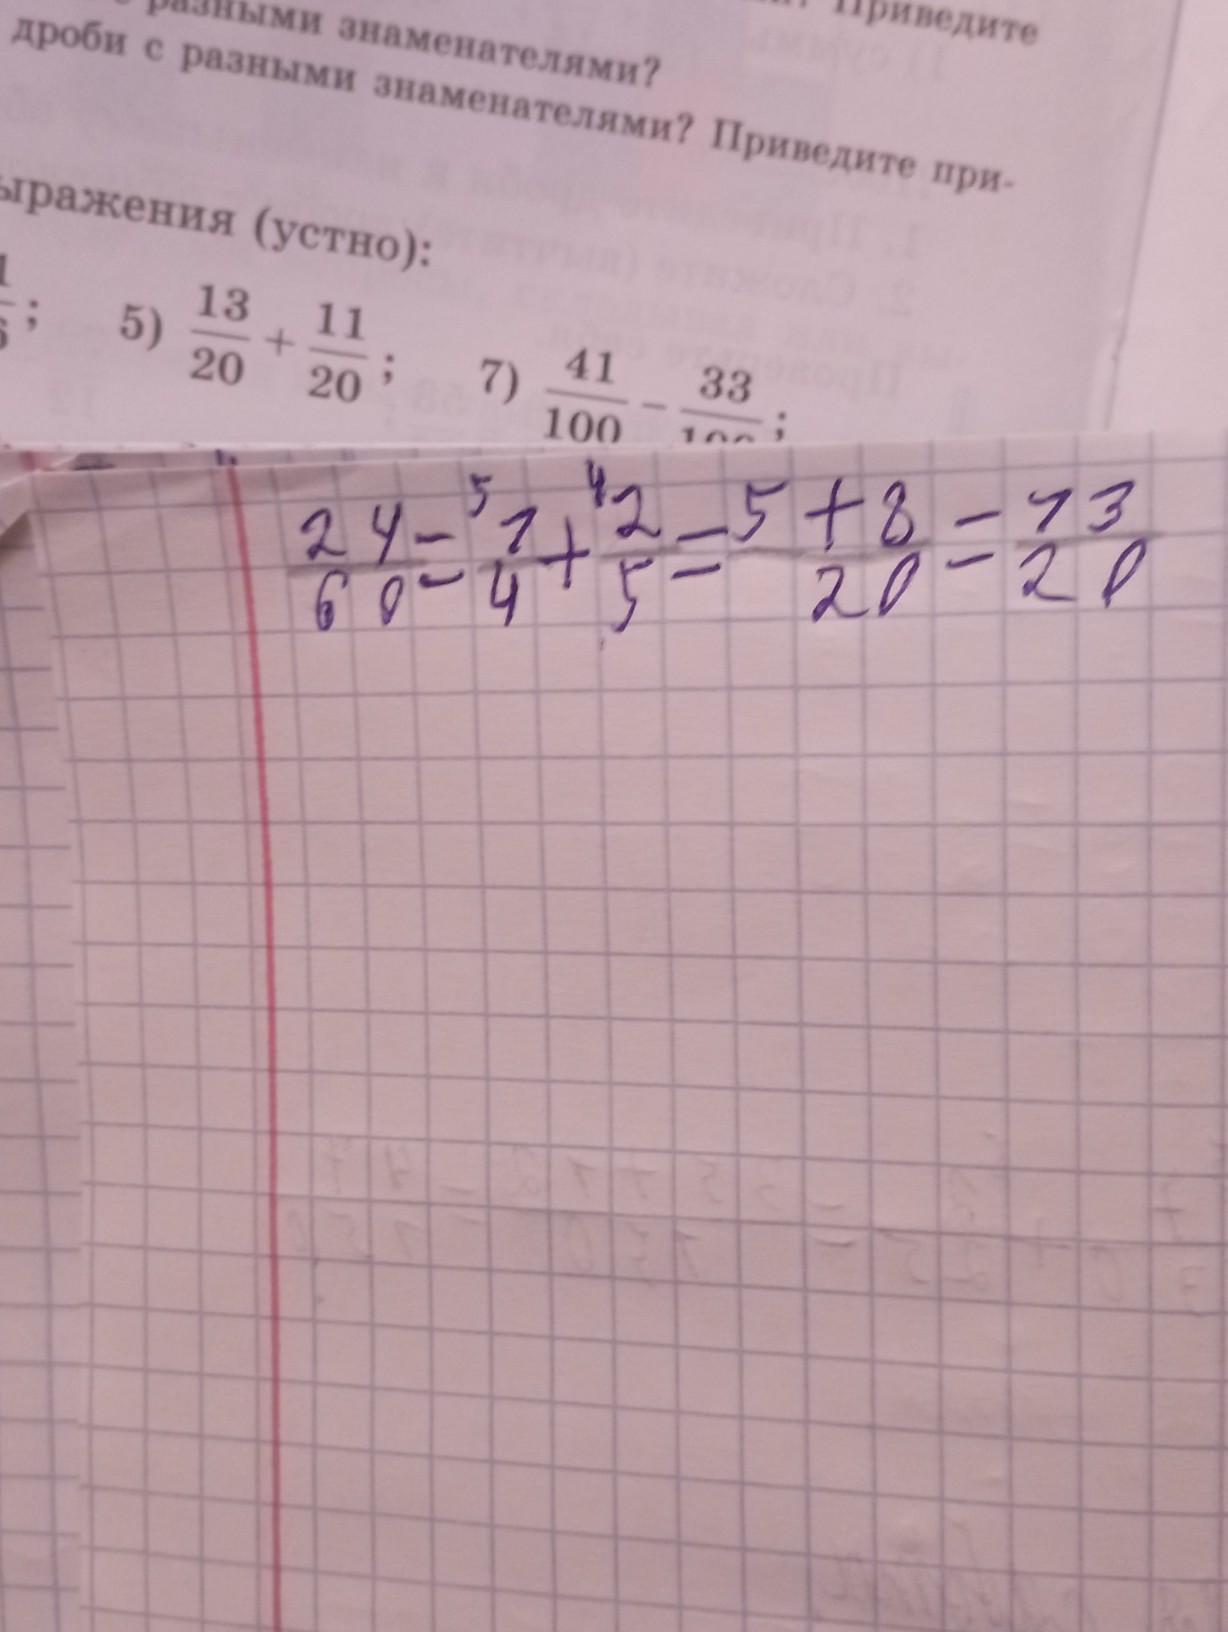 Приведите
разными знаменателями?
дроби с разными знаменателями? Приведите при-
ыражения (устно):
5) 13/20 + 11/20; 7) 41/100 - 33/100;
24/60 = ⁵1/4 + ⁴2/5 = 5+8/20 = 13/20